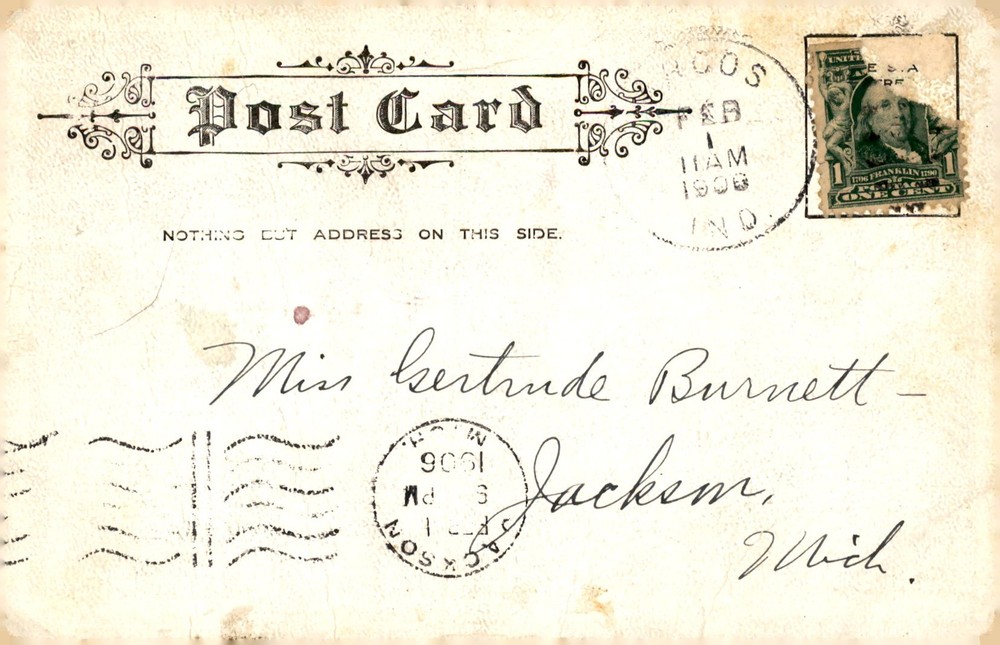 Post Card
NOTHING BUT ADDRESS ON THIS SIDE.
RGOS
FEB
1
11 AM
1906
IND.
UNIT
E STA
1
1706 FRANKLIN 1790
1
POSTAGE
ONE CENT
Miss Gertrude Burnett –
Jackson,
Mich.
JACKSON
FEB 1
PM
1906
MICH.